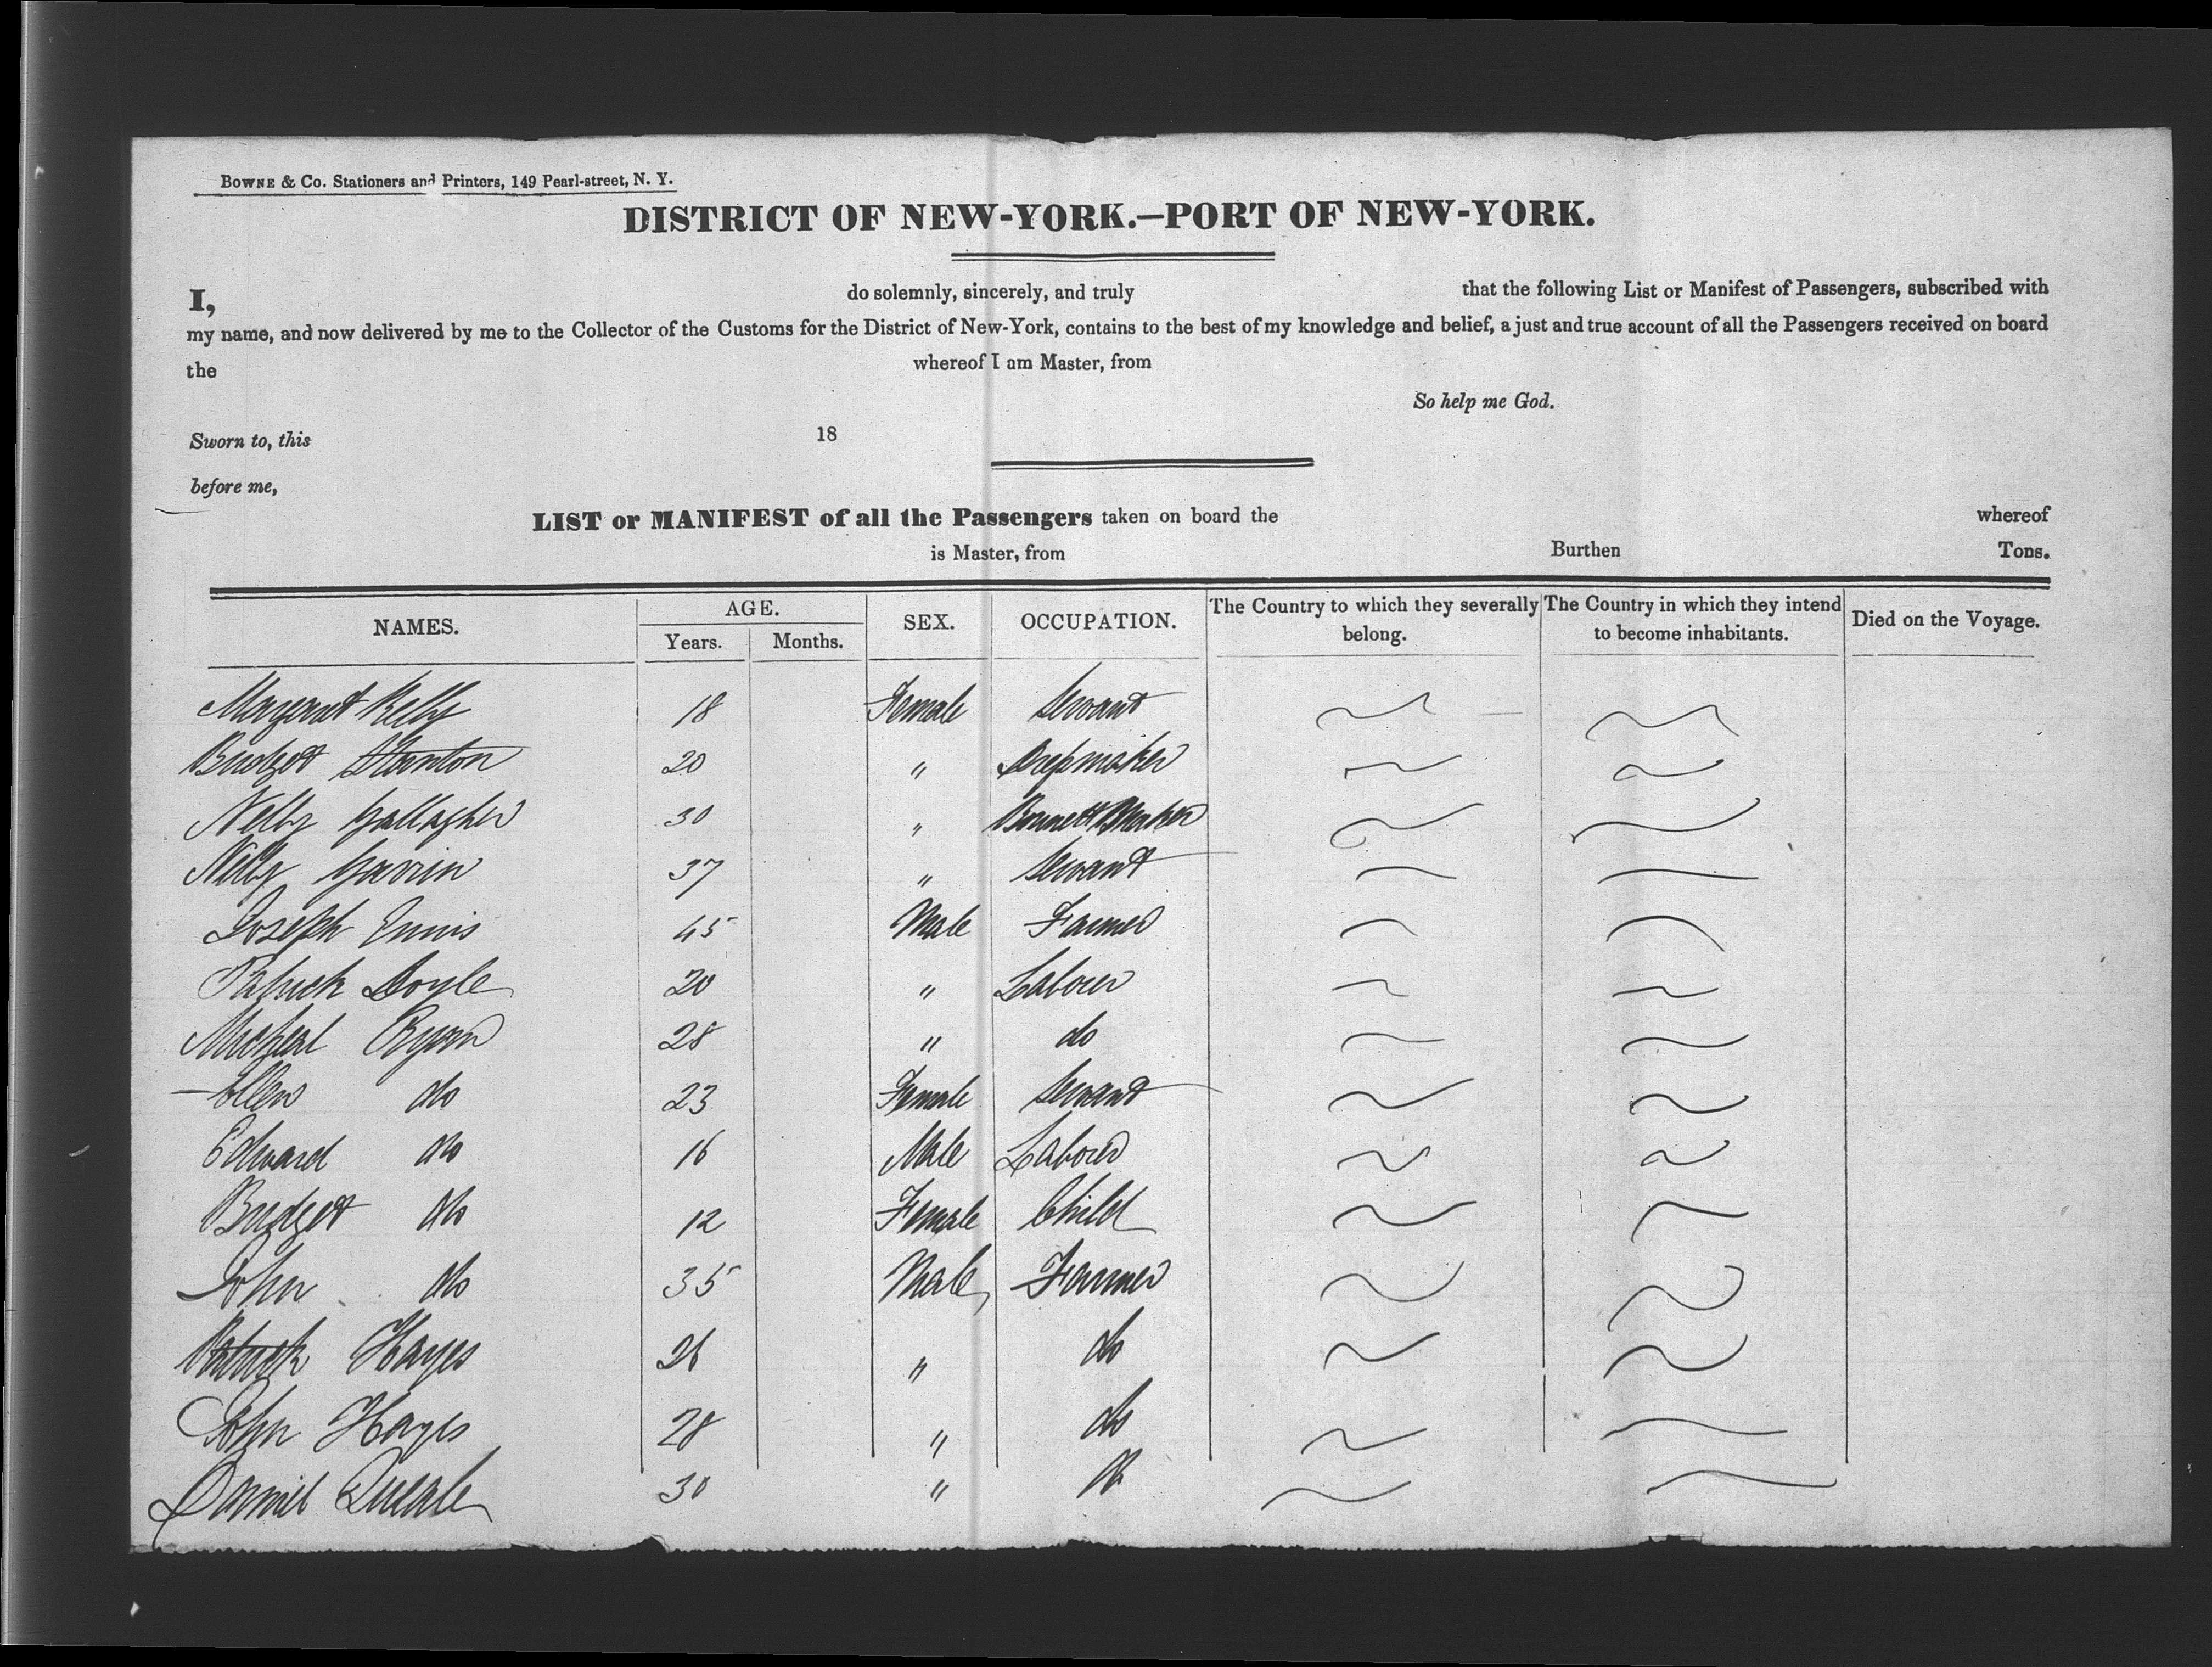 BOWNE & Co. Stationers and Printers, 149 Pearl-street, N. Y.
DISTRICT OF NEW-YORK.—PORT OF NEW-YORK.
I, do solemnly, sincerely, and truly that the following List or Manifest of Passengers, subscribed with
my name, and now delivered by me to the Collector of the Customs for the District of New-York, contains to the best of my knowledge and belief, a just and true account of all the Passengers received on board
the whereof I am Master, from
So help me God.
Sworn to, this 18
before me,
LIST or MANIFEST of all the Passengers taken on board the whereof
is Master, from Burthen Tons.
NAMES. AGE. Years. Months. SEX. OCCUPATION. The Country to which they severally belong. The Country in which they intend to become inhabitants. Died on the Voyage.
Margaret Kelly 18 Female Servant
Bridget Stanton 20 " Dressmaker
Nelly Gallagher 30 " Bonnett Maker
Nelly 37 " Servant
Joseph Ennis 45 Male Farmer
Patrick Doyle 20 " Labourer
Micheal Ryan 28 " do
Ellen do 23 Female Servant
Edward do 16 Male Labourer
Bridget do 12 Female Child
John do 35 Male Farmer
Patrick Hayes 26 " do
John Hayes 28 " do
Daniel 30 "